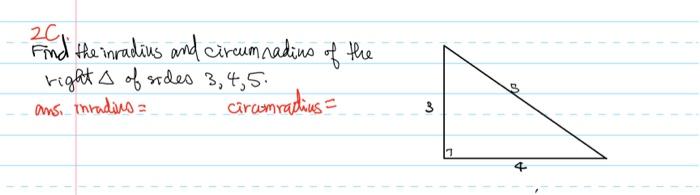 2C.
Find the inradius and circumradius of the
right Δ of sides 3, 4, 5.
ans. inradius = circumradius =
3
5
4